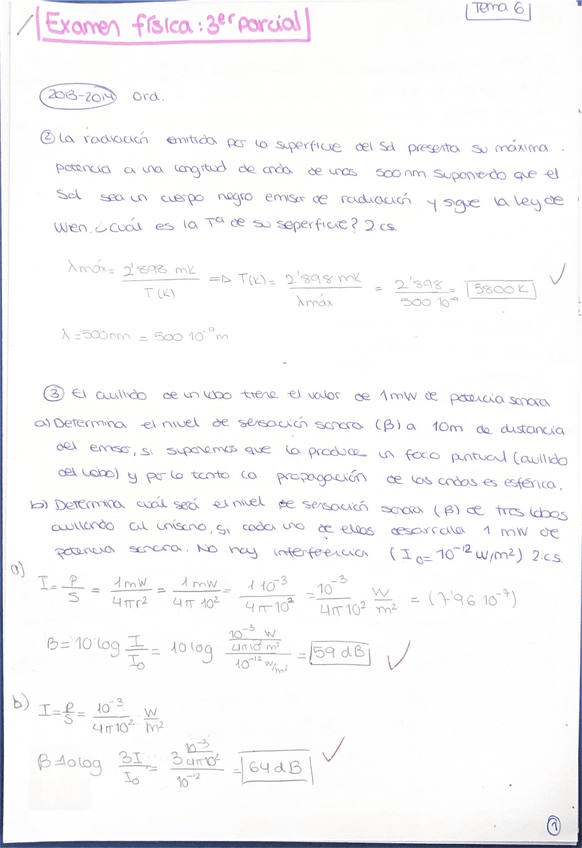 Tema 6
Examen física: 3er parcial
2013-2014 Ord.
② La radiación emitida por la superficie del Sol presenta su máxima
potencia a una longitud de onda de unos 500nm suponiendo que el
Sol sea un cuerpo negro emisor de radiación y sigue la ley de
Wen. ¿Cuál es la Tª de su seperficie? 2.cs.
λmáx = 2'898 mK / T(K) => T(K) = 2'898 mK / λmáx = 2'898 / 500 10⁻⁹ = 5800 K
λ = 500nm = 500 10⁻⁹ m
③ El aullido de un lobo tiene el valor de 1mW de potencia sonora
a) Determina el nivel de sensación sonora (β) a 10m de distancia
del emisor, si suponemos que la produce un foco puntual (aullido
del lobo) y por lo tanto la propagación de las ondas es esférica.
b) Determina cuál será el nivel de sensación sonora (β) de tres lobos
aullando al uniseno, si cada uno de ellos desarrolla 1 mW de
potencia sonora. No hay interferencia (I₀=10⁻¹² W/m²) 2.cs.
a) I = P/S = 1mW / 4πr² = 1mW / 4π 10² = 1 10⁻³ / 4π 10² = 10⁻³ / 4π10² W/m² = (7'96 10⁻⁷)
B = 10 log I/I₀ = 10 log (10⁻³ W / 4π10² m²) / (10⁻¹² W/m²) = 59 dB
b) I = P/S = 10⁻³ / 4π10² W/m²
B = 10log 3I/I₀ = 3 (10⁻³ / 4π10²) / 10⁻¹² = 64 dB
①